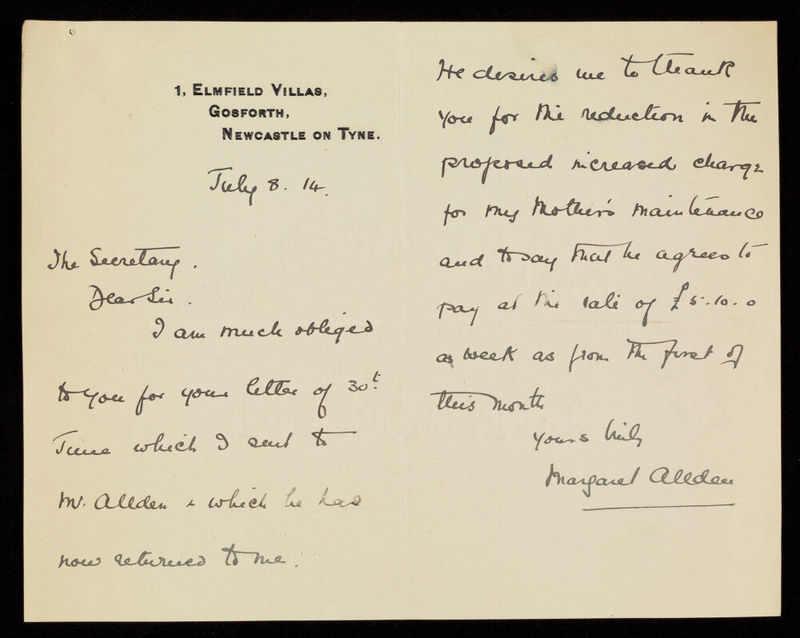 1, ELMFIELD VILLAS,
GOSFORTH,
NEWCASTLE ON TYNE.
July 8. 14.
The Secretary.
Dear Sir.
I am much obliged
to you for your letter of 30t.
June which I sent to
Mr. Allden & which he has
now returned to me.
He desires me to thank
you for the reduction in the
proposed increased charge
for my Mother's maintenance
and to say that he agrees to
pay at the rate of £5.10.0
a week as from the first of
this month
Yours truly
Margaret Allden